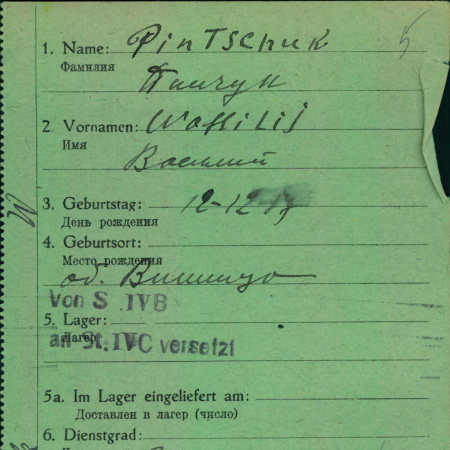 1. Name: Pintschuk
Фамилия
Пинчук
2. Vornamen: Wassilij
Имя
Василий
3. Geburtstag: 12-12-
День рождения
4. Geburtsort:
Место рождения
об. Винница
Von S IVB
5. Lager:
Лагерь
an St. IVC versetzt
5a. Im Lager eingeliefert am:
Доставлен в лагерь (число)
6. Dienstgrad: